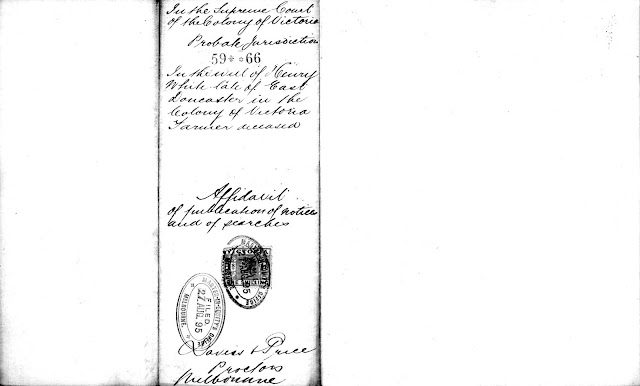 In the Supreme Court
of the Colony of Victoria
Probate Jurisdiction
59 * * 66
In the will of Henry
White late of East
Doncaster in the
Colony of Victoria
Farmer deceased
Affidavit
of publication of notice
and of searches
MASTER-IN-EQUITY'S OFFICE
FILED
27 AUG. 95
MELBOURNE
Davies & Price
Proctors
Melbourne